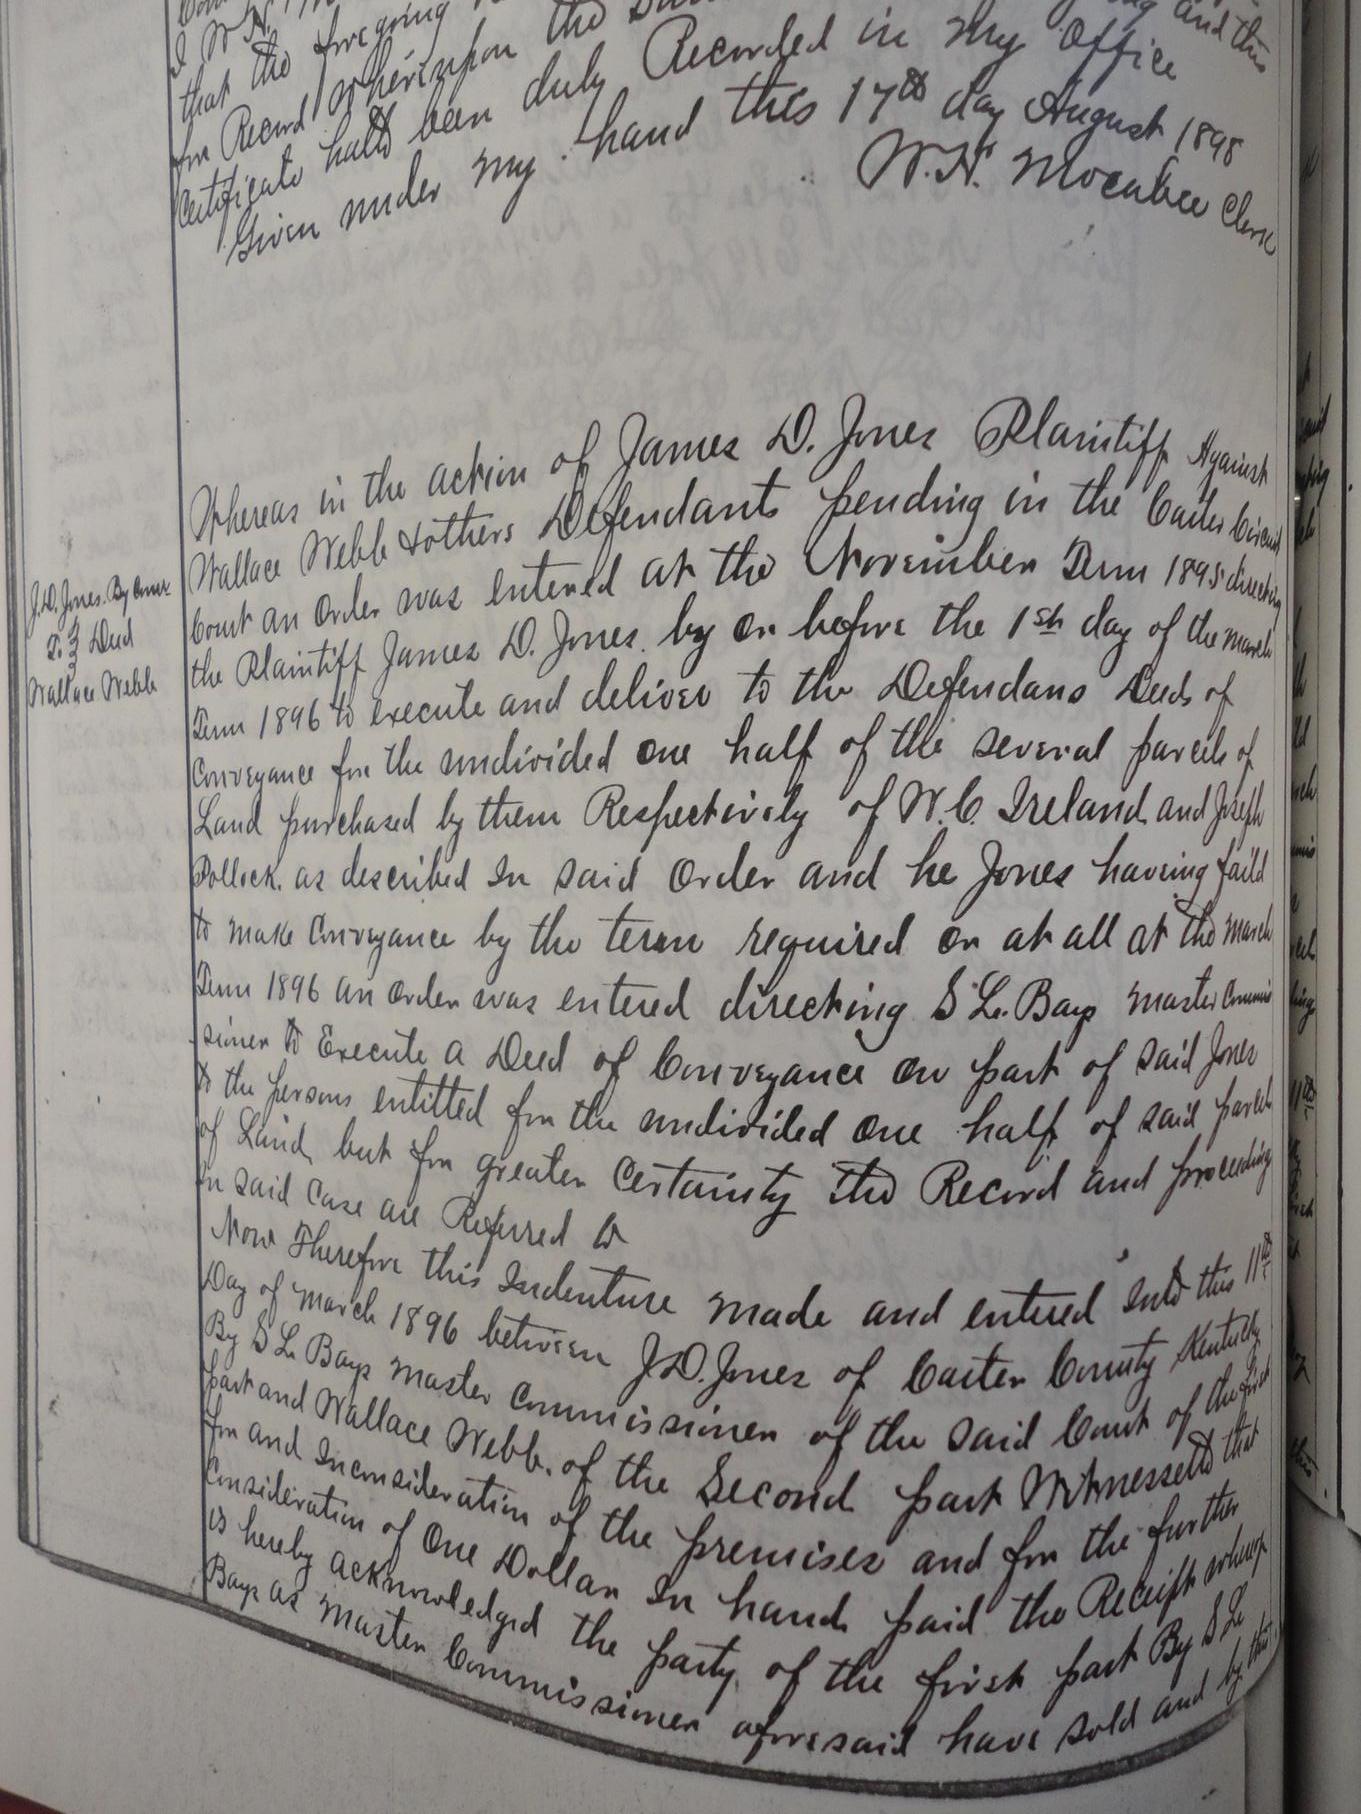 that the foregoing
for Record Whereupon the
Certificate hath been duly Recorded in my Office
Given under my hand this 17th day August 1898
W.H. Mocabee Clerk
J.D. Jones. By Comr
To } Deed
Wallace Webb
Whereas in the action of James D. Jones Plaintiff Against
Wallace Webb & others Defendants pending in the Carter Circuit
Court an Order was entered at the November Term 1895 directing
the Plaintiff James D. Jones. by or before the 1st day of the March
Term 1896 to execute and deliver to the Defendans Deeds of
Conveyance for the undivided one half of the several parcels of
Land purchased by them Respectively of W.C. Ireland and Joseph
Pollock. as described In said Order and he Jones having faild
to make Conveyance by the term required or at all at the March
Term 1896 an Order was entered directing S L. Bays Master Commis
sioner to Execute a Deed of Conveyance on part of said Jones
to the persons entitled for the undivided one half of said parcels
of Land, but for greater Certainty the Record and proceeding
In said Case are Referred to
Now Therefore this Indenture made and entered Into this 11th
Day of March 1896 between J.D. Jones of Carter County Kentucky
By S L. Bays Master Commissioner of the said Court of the first
part and Wallace Webb. of the Second part Witnesseth that
for and Inconsideration of the premises and for the further
Consideration of One Dollar In hand paid the Receipt whereof
is hereby acknowledged the party of the first part By S L
Bays as Master Commissioner aforesaid have sold and by this